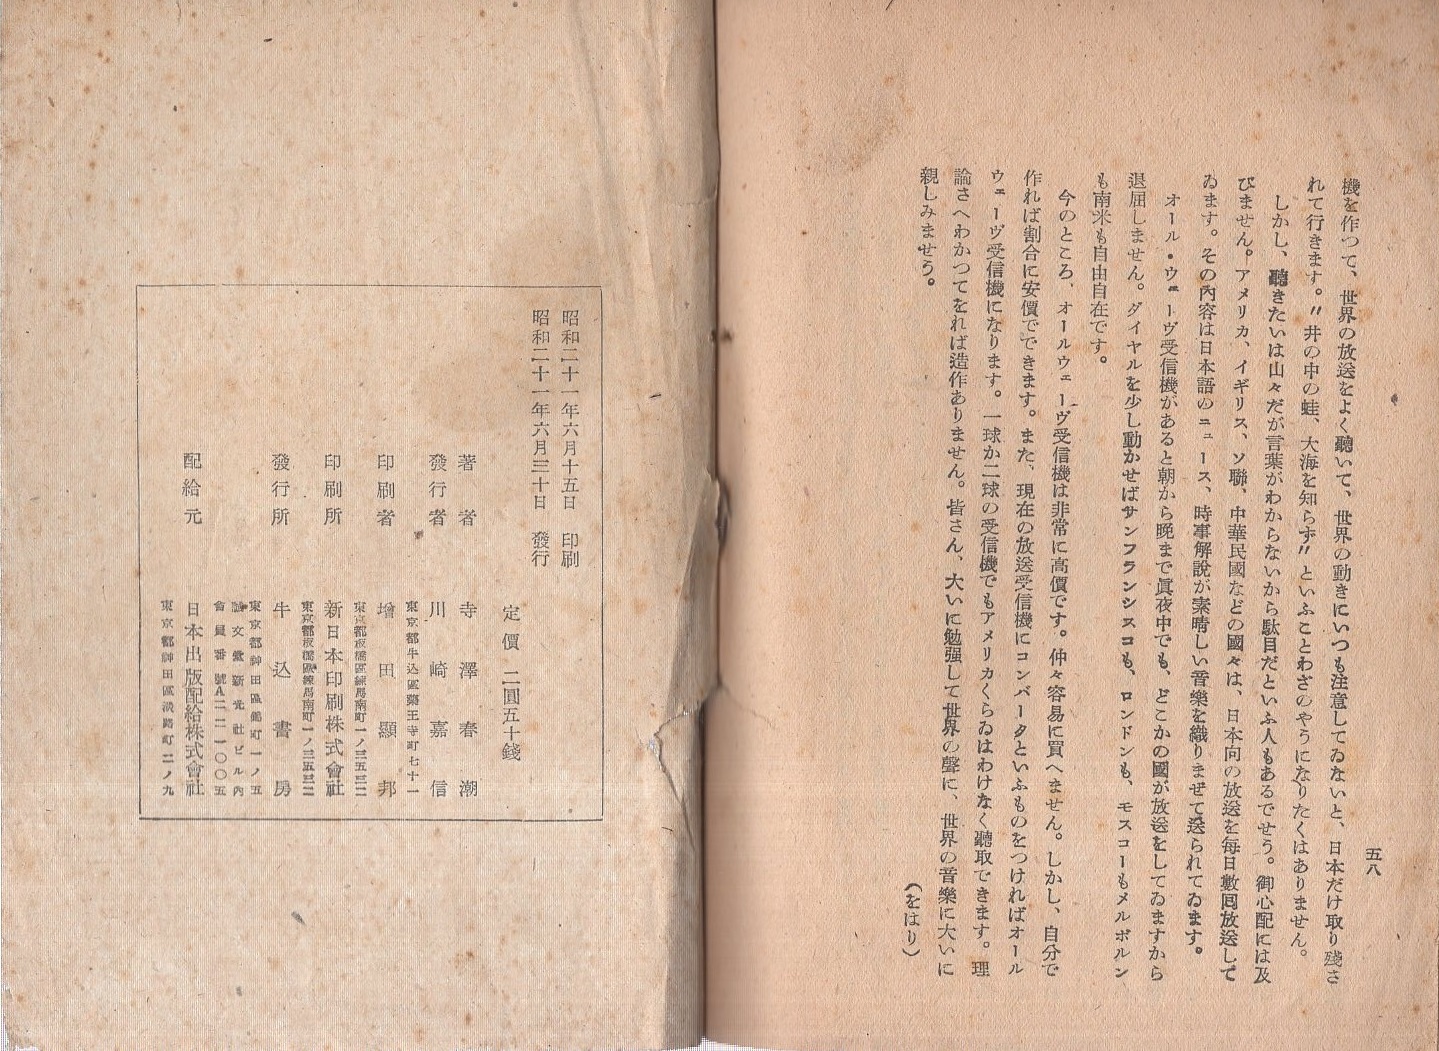 五八
機を作つて、世界の放送をよく聽いて、世界の動きにいつも注意してゐないと、日本だけ取り殘さ
れて行きます。〃井の中の蛙、大海を知らず〃といふことわざのやうになりたくはありません。
しかし、聽きたいは山々だが言葉がわからないから駄目だといふ人もあるでせう。御心配には及
びません。アメリカ、イギリス、ソ聯、中華民國などの國々は、日本向の放送を每日數回放送して
ゐます。その內容は日本語のニュース、時事解說が素晴しい音樂を織りまぜて送られてゐます。
オール・ウェーヴ受信機があると朝から晚まで眞夜中でも、どこかの國が放送をしてゐますから
退屈しません。ダイヤルを少し動かせばサンフランシスコも、ロンドンも、モスコーもメルボルン
も南米も自由自在です。
今のところ、オールウェーヴ受信機は非常に高價です。仲々容易に買へません。しかし、自分で
作れば割合に安價でできます。また、現在の放送受信機にコンバータといふものをつければオール
ウェーヴ受信機になります。一球か二球の受信機でもアメリカくらゐはわけなく聽取できます。理
論さへわかつてをれば造作ありません。皆さん、大いに勉强して世界の聲に、世界の音樂に大いに
親しみませう。
(をはり)
昭和二十一年六月十五日 印刷
昭和二十一年六月三十日 發行
定價 二圓五十錢
著者 寺澤春潮
發行者 川崎嘉信
東京都牛込區藥王寺町七十一
印刷者 增田顯邦
東京都板橋區練馬南町一ノ三五三二
印刷所 新日本印刷株式會社
東京都板橋區練馬南町一ノ三五三二
發行所 牛込書房
東京都神田區錦町一ノ五
誠文堂新光社ビル內
會員番號A二二一〇〇五
配給元 日本出版配給株式會社
東京都神田區淡路町二ノ九